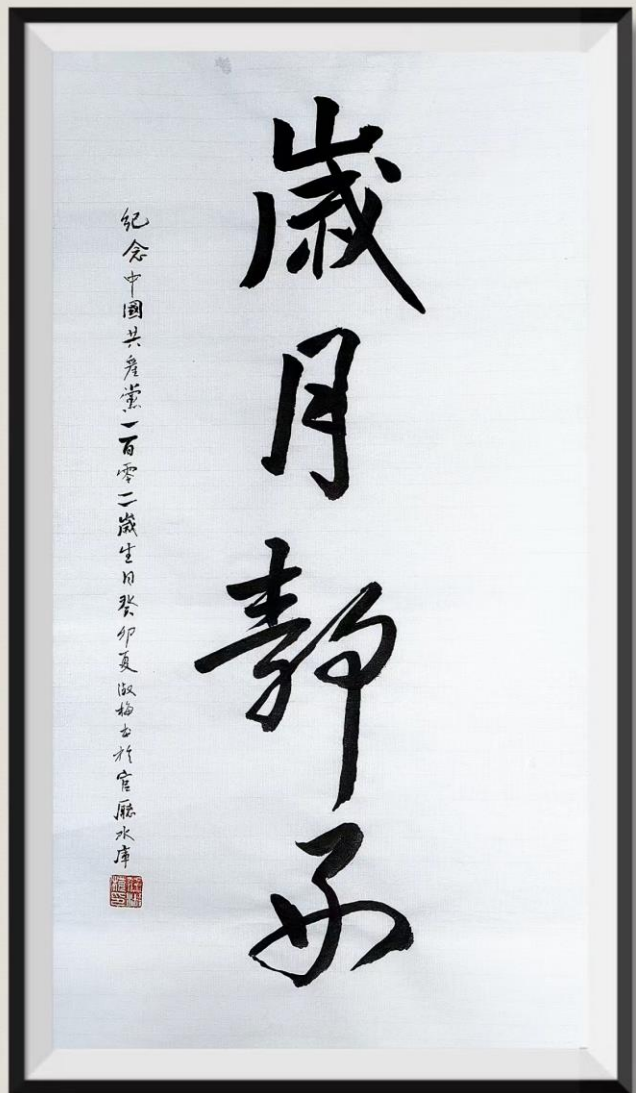 歲月靜好
紀念中國共產黨一百零二歲生日癸卯夏淑梅书於官廳水庫